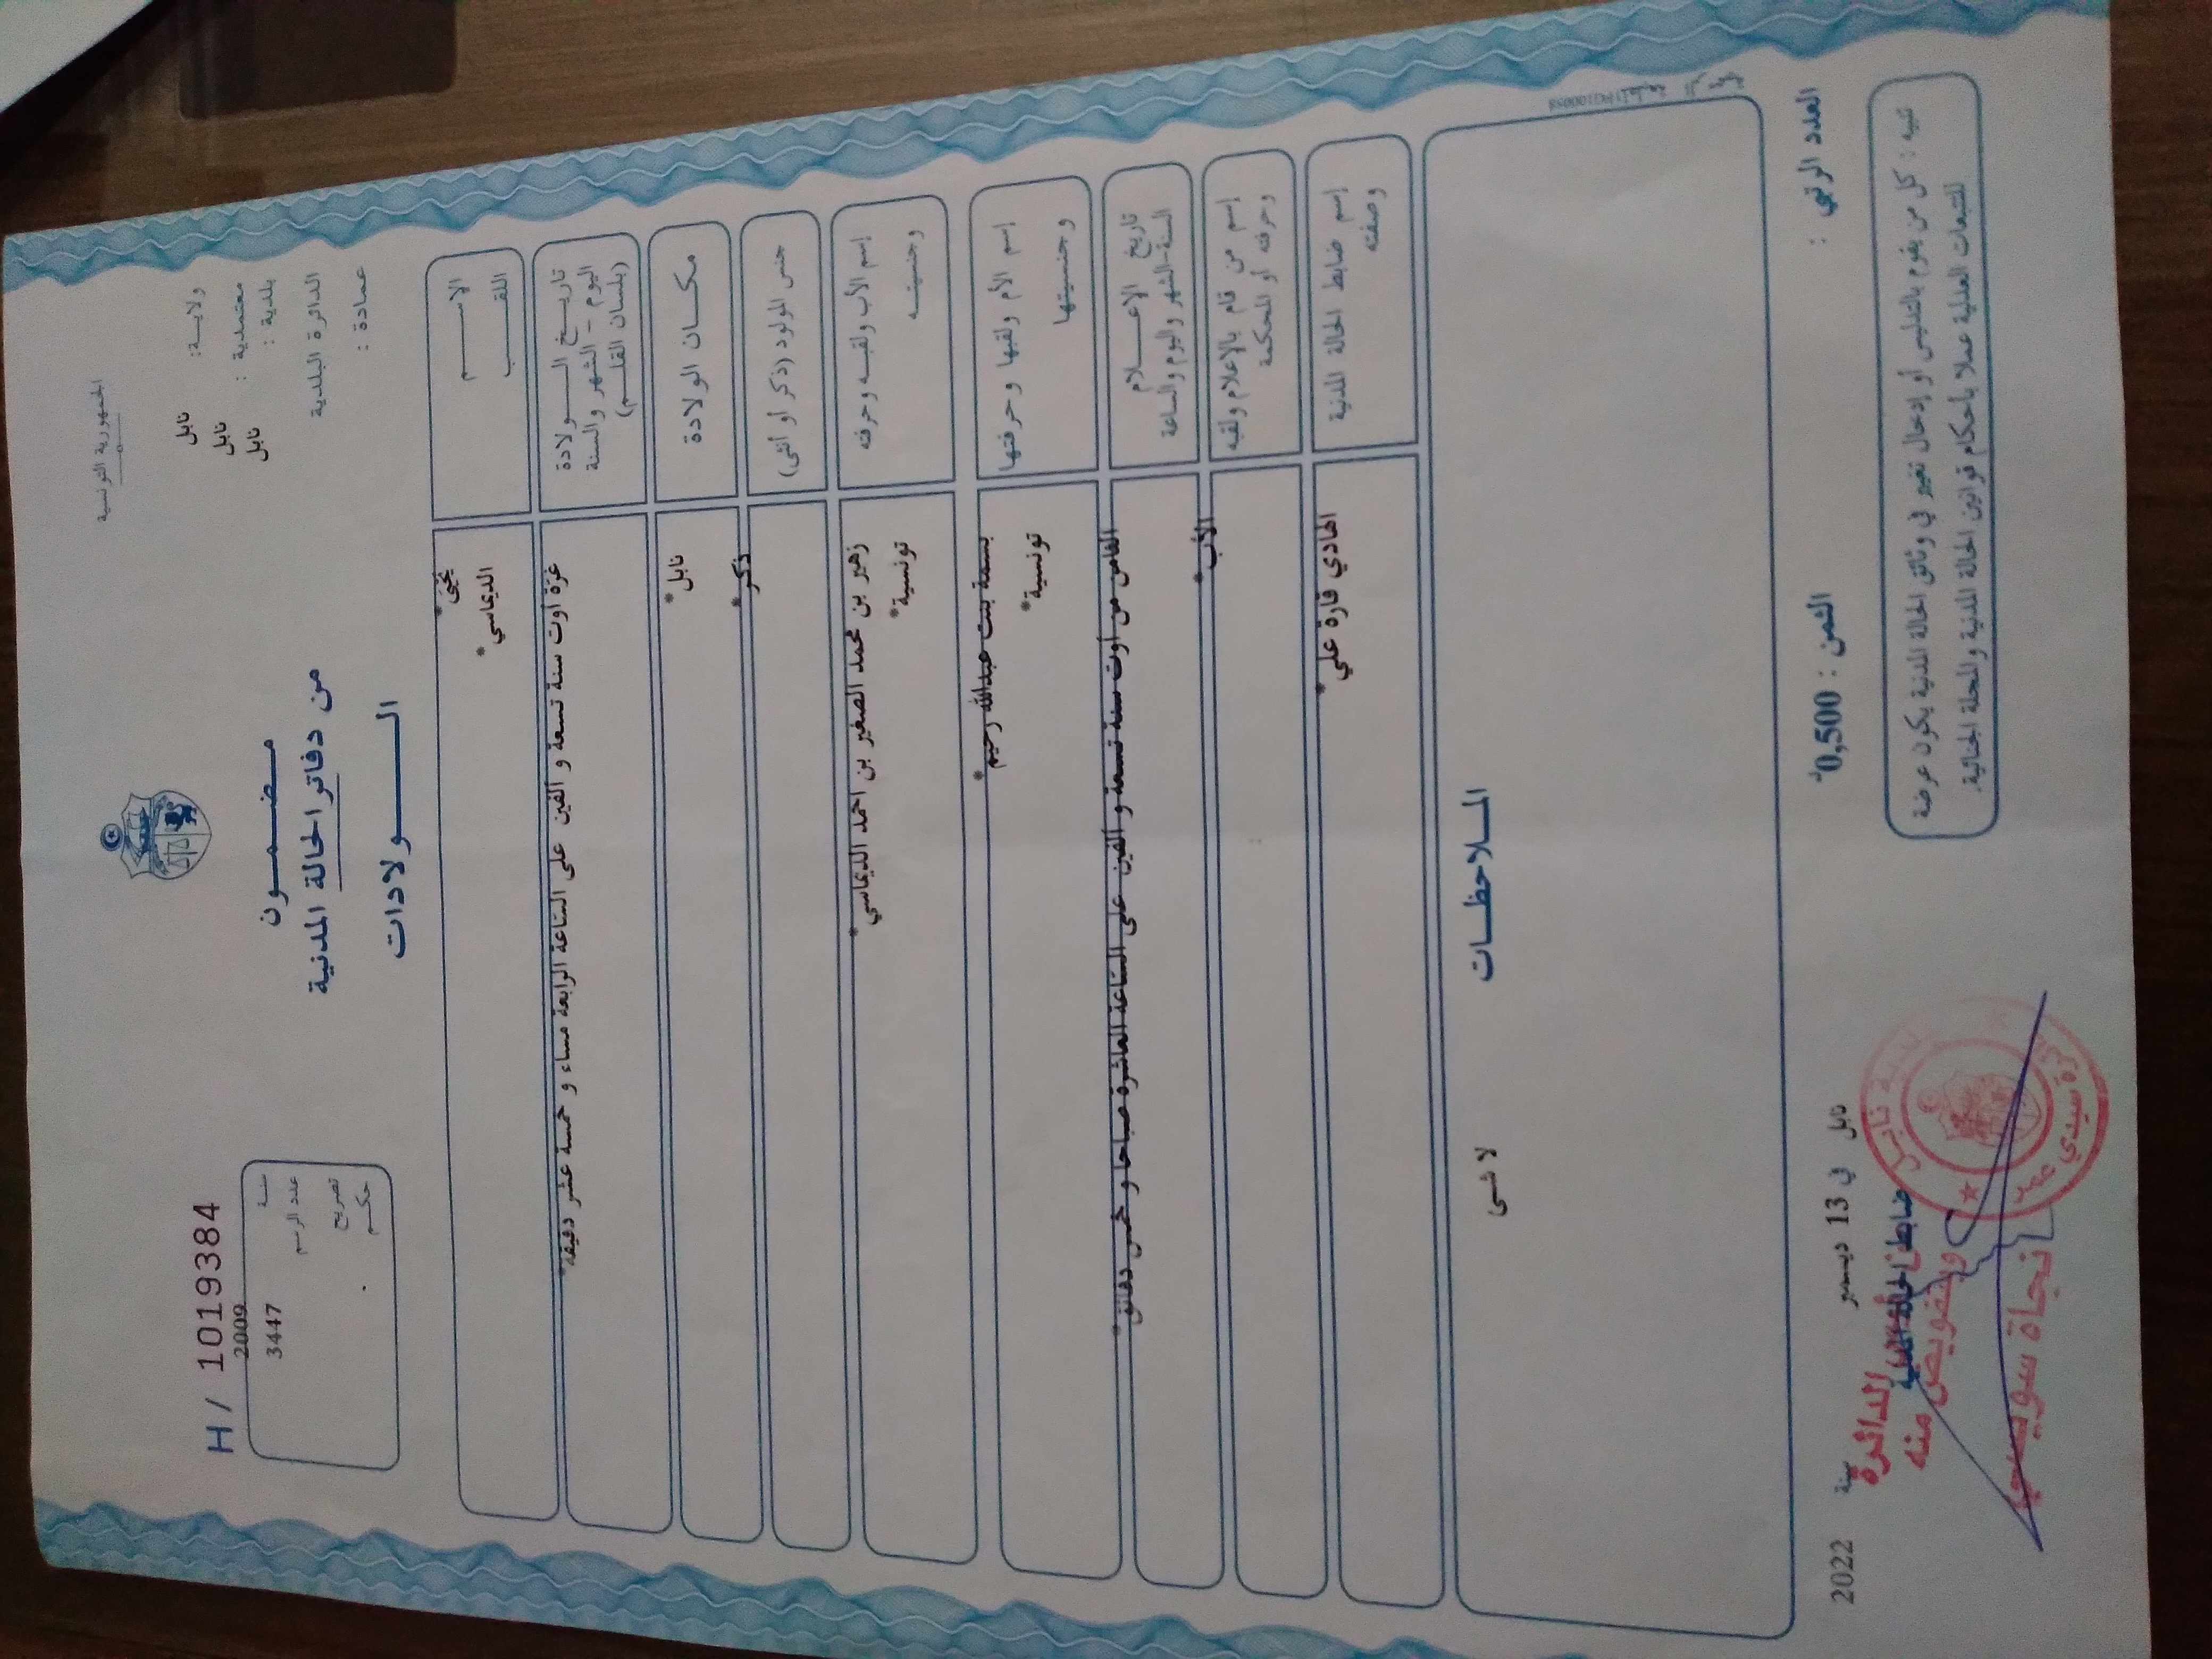 الجمهورية التونسية
ولاية: نابل
معتمدية : نابل
بلدية : نابل
الدائرة البلدية
عمادة :
مضمون
من دفاتر الحالة المدنية
الولادات
H/ 1019384
سنة 2009
عدد الرسم 3447
تصريح
حكم
الاسم يحيى*
اللقب الديماسي*
تاريخ الولادة
اليوم - الشهر والسنة
(بلسان القلم)
غرّة أوت سنة تسعة و الفين على الساعة الرابعة مساء و خمسة عشر دقيقة*
مكان الولادة نابل*
جنس المولود (ذكر أو أنثى) ذكر*
إسم الأب ولقبه وحرفته زهير بن محمد الصغير بن احمد الديماسي*
وجنسيته تونسية*
إسم الأم ولقبها وحرفتها بسمة بنت عبدالله رحيم*
وجنسيتها تونسية*
تاريخ الاعلام
السنة-الشهر واليوم والساعة
الثامن من أوت سنة تسعة و ألفين على الساعة العاشرة صباحا و خمس دقائق*
إسم من قام بالاعلام ولقبه
وحرفته أو المحكمة
الأب*
إسم ضابط الحالة المدنية
وصفته
الهادي قارة علي*
الملاحظات
لا شى
العدد الرتبي :
الثمن : 0,500د
نابل في 13 ديسمبر سنة 2022
ضابط الحالة المدنية
الدائرة
وبتفويض منه
نجاة سويسي
بلدية نابل
دائرة سيدي عمر
تنبيه : كل من يقوم بالتدليس أو إدخال تغيير في وثائق الحالة المدنية يكون عرضة
للتتبعات العدلية عملا بأحكام قوانين الحالة المدنية والمجلة الجنائية.